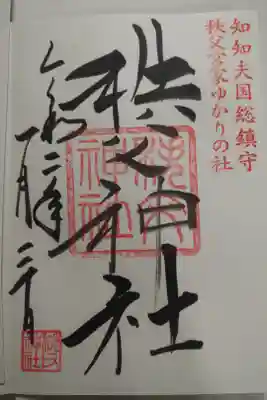 知知夫国総鎮守
秩父宮家ゆかりの社
秩父神社
秩父神社
令和二年一月二十日
秩父神社